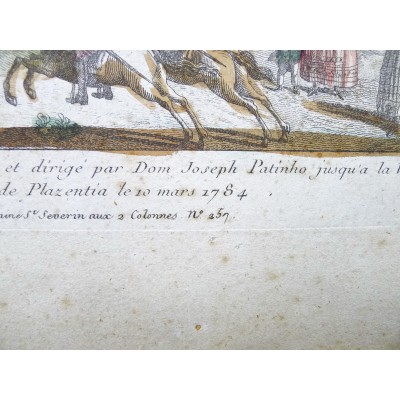 et dirigé par Dom Joseph Patinho jusqu'a la
de Plazentia le 10 mars 1784
St Severin aux 2 Colonnes No 257